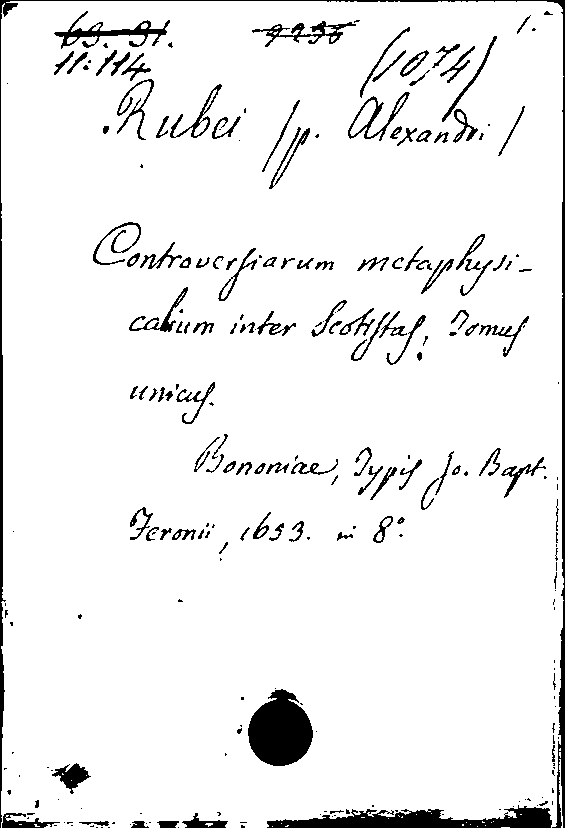 63. 31. 9236 1.
11:114 (1074)
Rubei /p. Alexandri /
Controversiarum metaphysi-
calium inter Scotistas, Tomus
unicus.
Bononiae, Typis Jo. Bapt.
Feronii, 1653. in 8°.